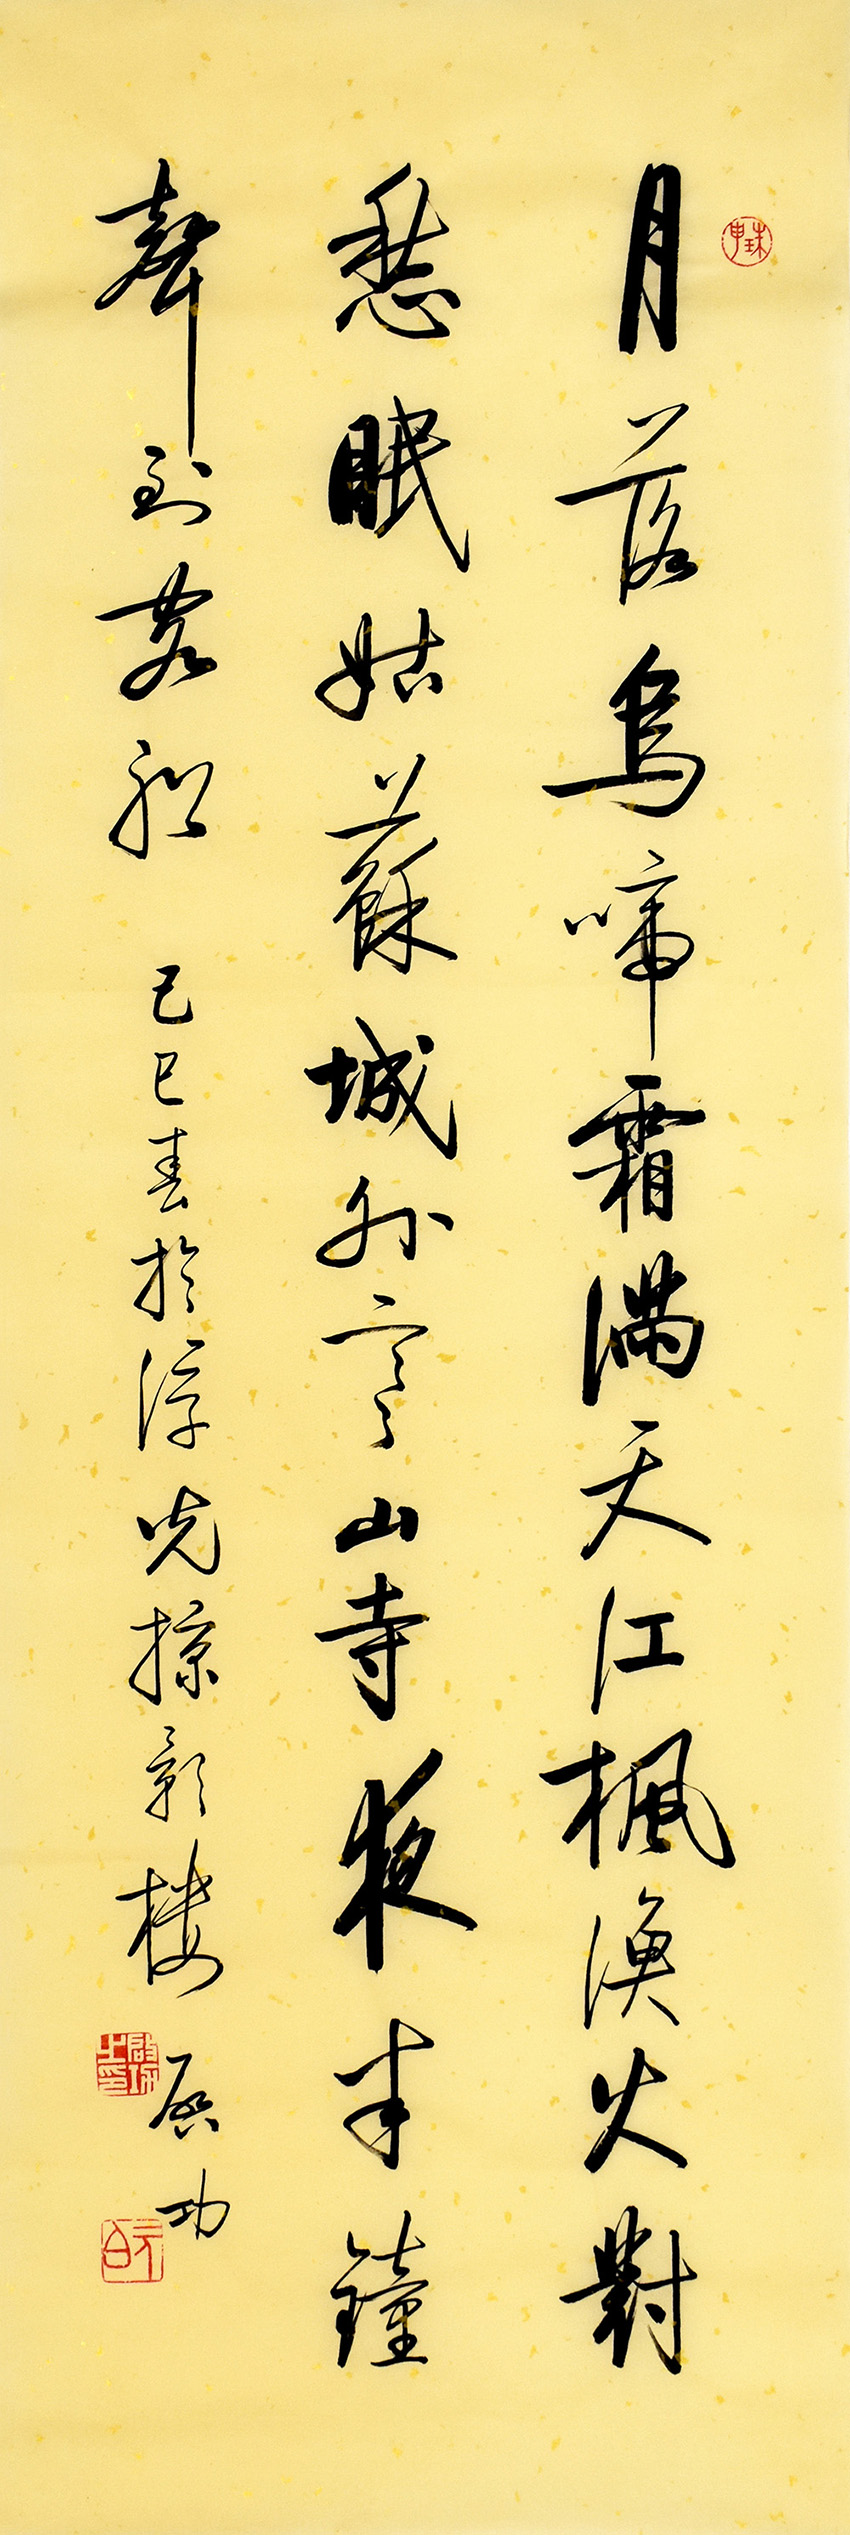 珠申
月落烏啼霜滿天江楓漁火對
愁眠姑蘇城外寒山寺夜半鐘
聲到客船 己巳春於浮光掠影樓 启功
啟功之印
元白